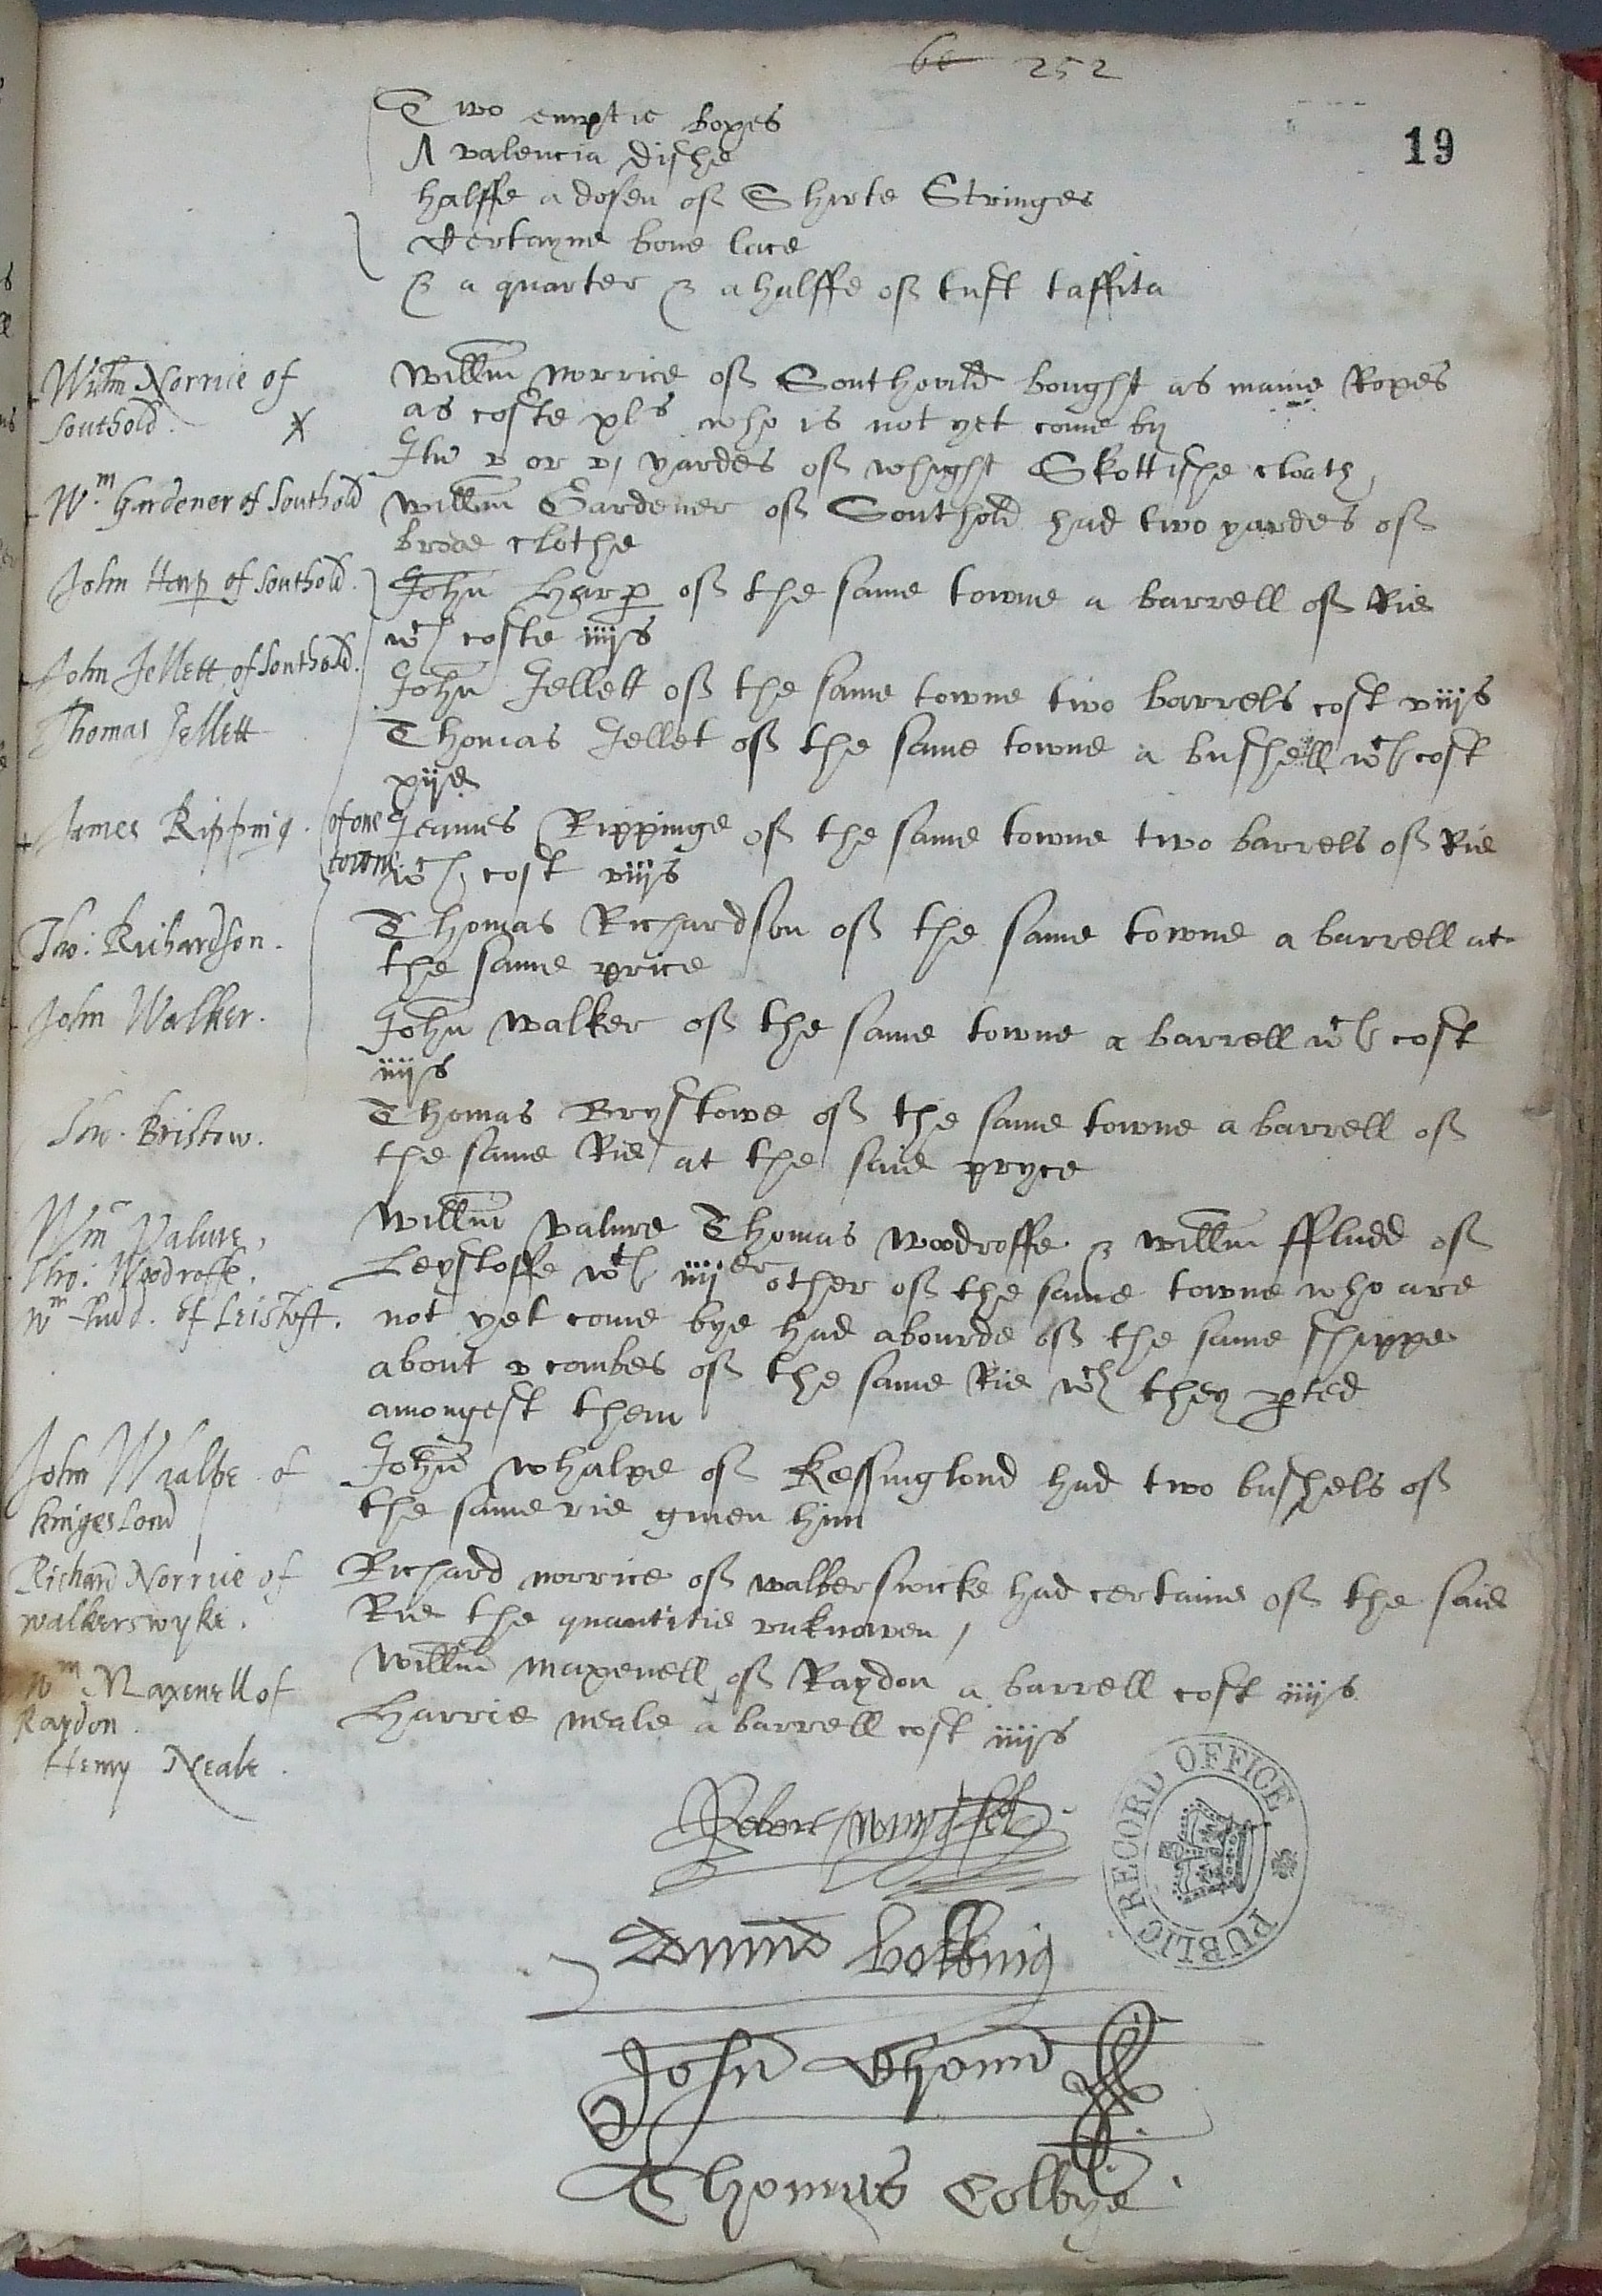 60 252
19
Two emptie boxes
A valencia dishe
halffe a dosen of Shirte Stringes
Certayne bone lace
& a quarter & a halffe of tuft taffita
Willm Norrice of
Southold.
Willm norrice of Southould bought as manie Ropes
as coste xls who is not yet come by
Itm v or vj yardes of whight Skottishe cloath
Wm. Gardener of Southold
Willm Gardener of Southold had two yardes of
brode clothe
John Harp of Southold.
John Harp of the same towne a barrell of Rie
wch coste iiijs
John Jellett of Southold.
John Jellett of the same towne two barrels cost viijs
Thomas Jellett
Thomas Jellet of the same towne a bushell wch cost
xijd
James Ripping.
of one
towne
Jeames Rippinge of the same towne two barrels of Rie
wch cost viijs
Tho: Richardson.
Thomas Richardson of the same towne a barrell at
the same price
John Walker.
John walker of the same towne a barrell wch cost
iiijs
Tho. Bristow.
Thomas Brystowe of the same towne a barrell of
the same Rie at the said pryce
Wm Valure,
Tho: Woodroffe.
Wm Fludd. of Leistoff.
Willm valure Thomas woodroffe & willm ffludd of
Leystoffe wth iiijer other of the same towne who are
not yet come bye had abourde of the same shippe
about v combes of the same Rie wch they pted
amongest them
John Whalpe of
kingeslond
John whalpe of Kessinglond had two bushels of
the same rie giuen him
Richard Norrice of
walkerswyke.
Richard norrice of walberswicke had certaine of the said
Rie the quantitie vnknowen /
Wm Maxenell of
Raydon.
Willm maxenell of Raydon a barrell cost iiijs
Henry Neale.
Harrie neale a barrell cost iiijs
PUBLIC RECORD OFFICE
Edmund Bokking
John
Thomas Colbye